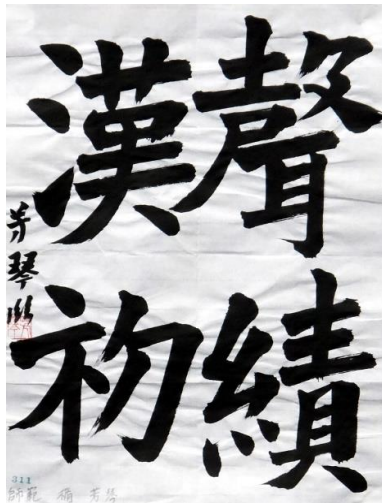 聲績
漢初
芳琴
311
師範 芳琴